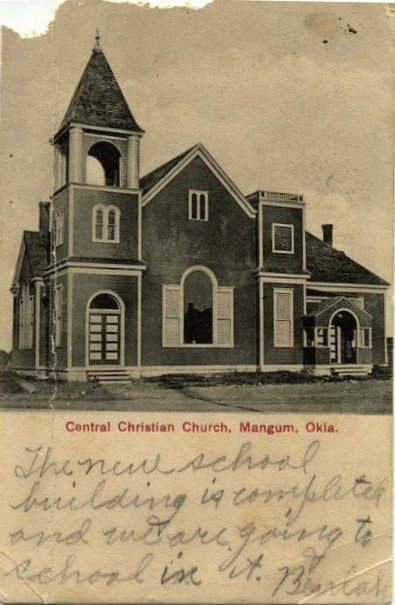 Central Christian Church, Mangum, Okla.
The new school
building is completed
and we are going to
school in it. Beulah